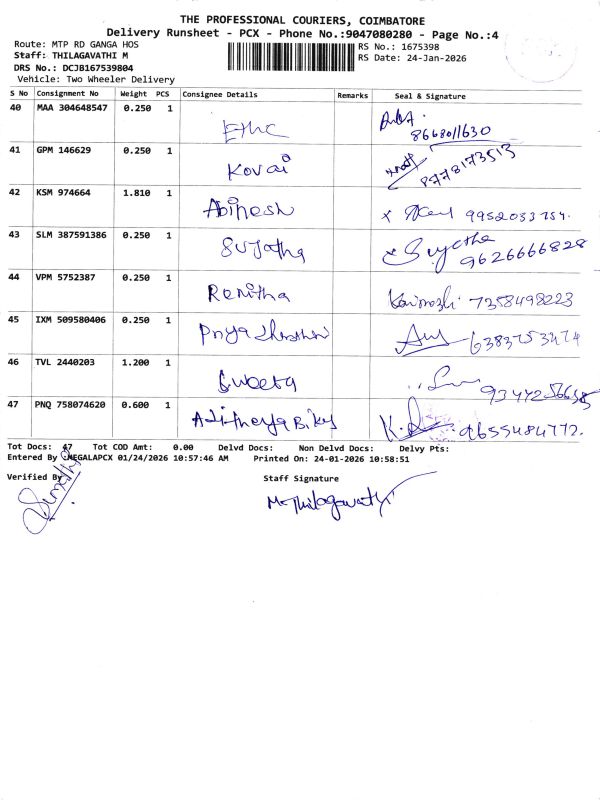 THE PROFESSIONAL COURIERS, COIMBATORE
Delivery Runsheet - PCX - Phone No.:9047080280 - Page No.:4
Route: MTP RD GANGA HOS
RS No.: 1675398
Staff: THILAGAVATHI M
RS Date: 24-Jan-2026
DRS No.: DCJB167539804
Vehicle: Two Wheeler Delivery
S No Consignment No Weight PCS Consignee Details Remarks Seal & Signature
40 MAA 304648547 0.250 1
8668011630
41 GPM 146629 0.250 1 Kovai
8778173513
42 KSM 974664 1.810 1 Abinesh
43 SLM 387591386 0.250 1 Sujatha Sujetha
9626666828
44 VPM 5752387 0.250 1 Renitha 7358498223
45 IXM 509580406 0.250 1
46 TVL 2440203 1.200 1 Sweeta
47 PNQ 758074620 0.600 1 9655484772.
Tot Docs: 47 Tot COD Amt: 0.00 Delvd Docs: Non Delvd Docs: Delvy Pts:
Entered By :MEGALAPCX 01/24/2026 10:57:46 AM Printed On: 24-01-2026 10:58:51
Verified By Staff Signature
M. Thilagavathy